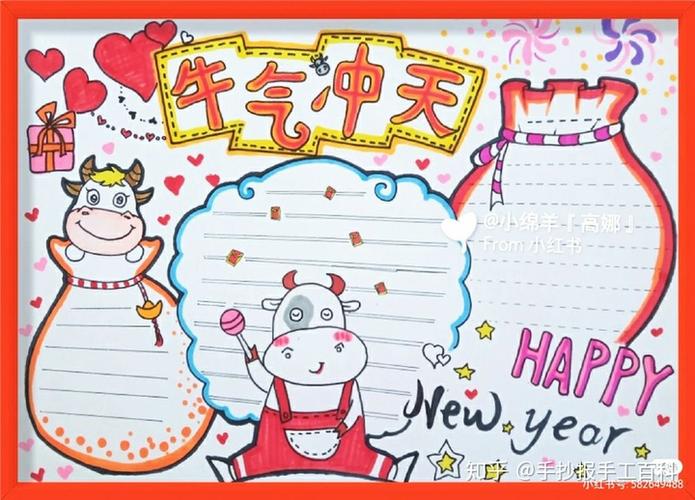 牛气冲天
@小绵羊『高娜』
From 小红书
HAPPY
New year
知乎 @手抄报手工百科
小红书号: 582649488